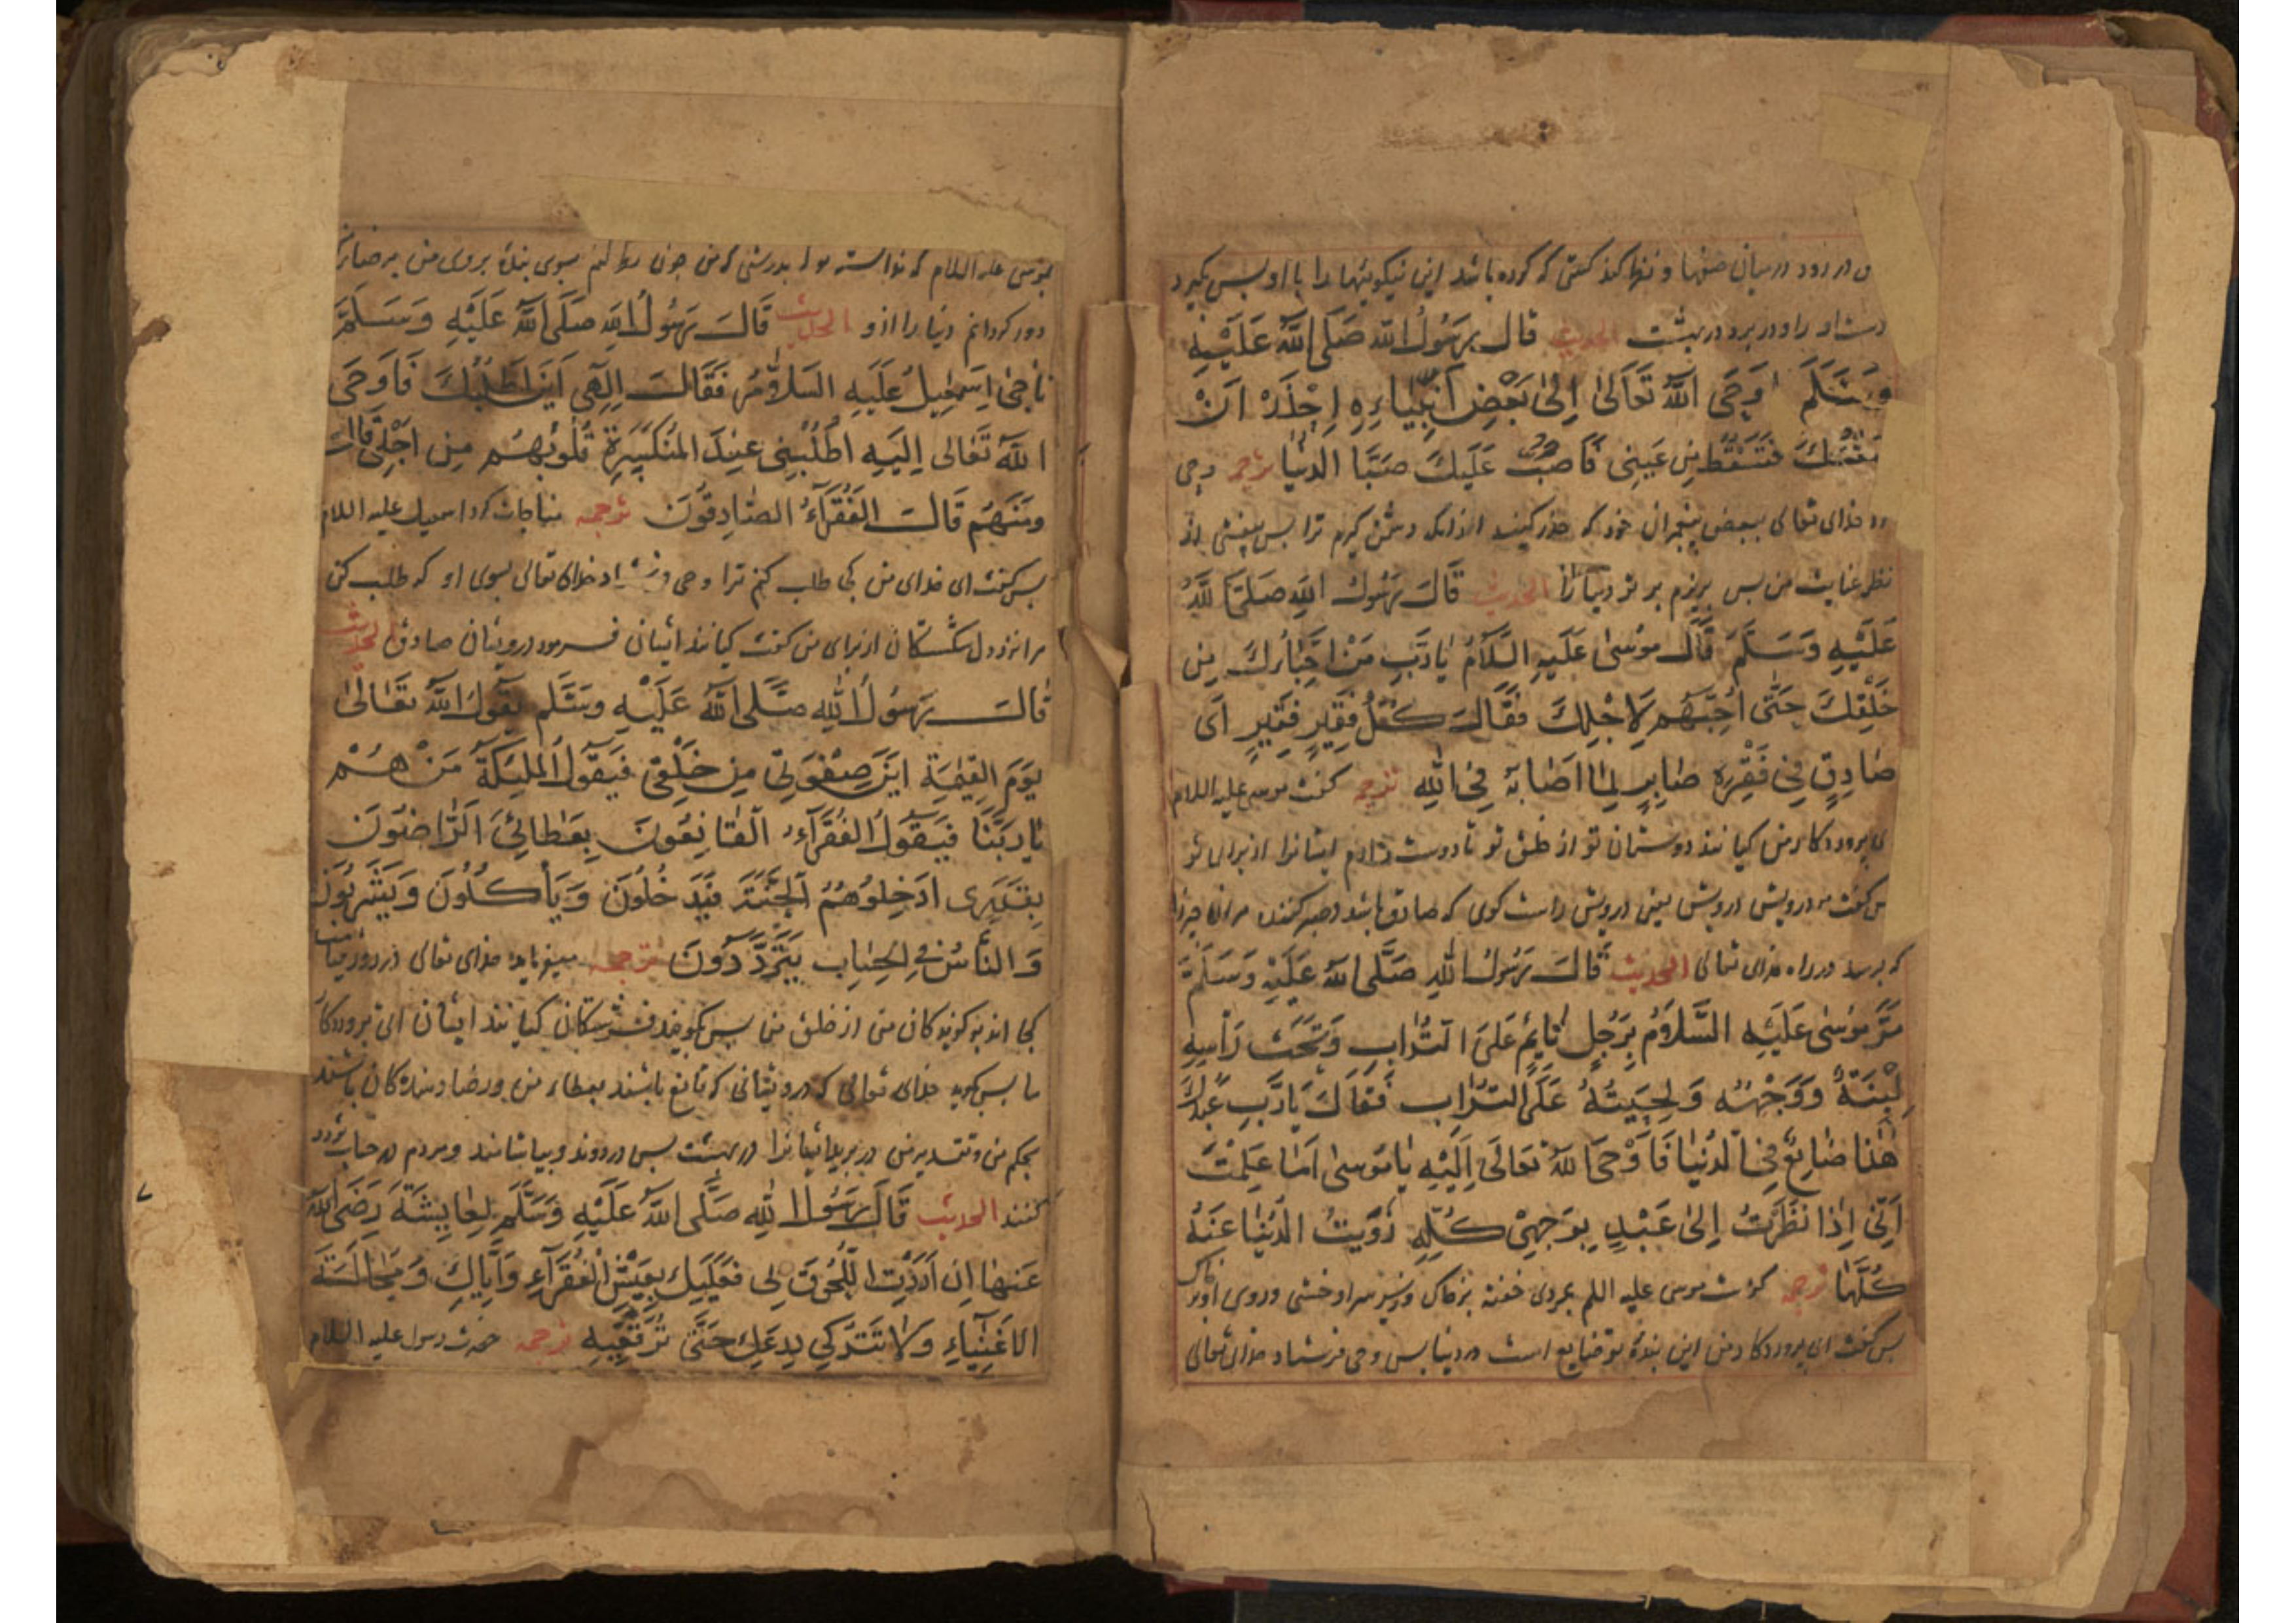 در رود درمیان صفها و نظر کند کسی که کرده باشد این نیکوئیها را با او پس بگیرد
دست او را و در برد در بهشت الحدیث قال رَسُولُ اللهِ صَلَى اللهُ عَلَيْهِ
وَسَلَّمَ اَوْحَى اللهُ تَعَالَىٰ اِلىٰ بَعْضِ اَنْبِيَاءِهِ اِحْذَرْ اَنْ
مَقَتُّكَ فَتَسْقُطَ مِن عَيْنِى فَاَصُبُّ عَلَيكَ صَبَّا الدُنْيَا ترجمه وحی
خدای تعالی ببعض پیغمبران خود که حذر کنید از انک دشمن گیرم ترا پس بیفتی از
نظر عنایت من پس بریزم بر تو دنیا را الحدیث قَالَ رَسُولُ اللهِ صَلَّى اللهُ
عَلَيْهِ وَسَلَّمَ قَالَ مُوْسٰى عَلَيهِ السَّلَامُ يَا رَبِّ مَنْ اَحِبَّاءُكَ مِن
خَلْقِكَ حَتّٰى اُحِبَّهُمْ لِاَجْلِكَ فَقَالَ كُلُّ فَقِيرٍ فَقِيرٍ اَى
صَادِقٍ فِى فَقْرِهِ صَابِرٍ لِمَا اَصَابَهُ فِى اللهِ ترجمه گفت موسی علیه السلام
ای پروردکار من کیانند دوستان تو از خلق تو تا دوست دارم ایشانرا از برای تو
پس گفت هر درویش درویش یعنی درویش راست کوی که صادق باشد و صبر کننده مر ان چیز را
که برسد در راه خدای تعالی الحدیث قَالَ رَسُولُ اللهِ صَلَّى اللهُ عَلَيْهِ وَسَلَّمَ
مَرَّ مُوْسٰى عَلَيْهِ السَّلَامُ بِرَجُلٍ نَايِمٍ عَلىَ التُرَابِ وَتَحْتَ رَأسِهِ
لِبْنَةٌ وَوَجْهُهُ وَلِحْيَتُهُ عَلَى التُرَابِ فَقَالَ يَا رَبِّ عَبْدُكَ
هٰذَا ضَايِعٌ فِى الدُنْيَا فَاَوْحَى اللهُ تَعَالَى اِلَيْهِ يَا مُوسىٰ اَمَا عَلِمْتَ
اَنِّى اِذَا نَظَرْتُ اِلىٰ عَبْدٍ بِوَجْهِىْ كُلِّهِ زَوَيتُ الدُنْيَا عَنْهُ
كُلَّهَا ترجمه گذشت موسی علیه السلم بمردی خفته بر خاک و زیر سر او خشتی و روی او بر خاک
پس گفت ای پروردکار من این بندهٔ تو ضایع است در دنیا پس وحی فرستاد خدای تعالی
بموسی علیه السلام که ندانستهٔ تو که بدرستی که من چون نظر کنم بسوی بندهٔ بروی من
دور کردانم دنیا را از و الحدیث قَالَ رَسُولُ اللهِ صَلَى اللهُ عَلَيْهِ وَسَلَّمَ
نَاجىٰ اِسْمٰعِيلُ عَلَيهِ السَلَامُ فَقَالَ اِلٰهِى اَيْنَ اَطْلُبُكَ فَاَوحَى
اللهُ تَعَالى اِلَيهِ اُطْلُبْنِى عِنْدَ المُنْكَسِرَةِ قُلُوبُهُم مِن اَجْلِى قَالَ
وَمَنْهُم قَالَ الفُقَرَآءُ الصَّادِقُونَ ترجمه مناجات کرد اسمعیل علیه السلام
پس گفت ای خدای من کجا طلب کنم ترا وحی فرستاد خدای تعالی بسوی او که طلب کن
مرا نزد دل شکستکان از برای من گفت کیانند ایشان فرمود درویشان صادق الحدیث
قَالَ رَسُولُ اللهِ صَلَّى اللهُ عَلَيْهِ وَسَلَّم يَقُولُ اللهُ تَعَالىٰ
يَومَ القِيٰمَةِ اَيْنَ صِفْوَتِى مِن خَلْقِى فَيَقُولُ المَلٰئِكَةُ مَنْ هُمْ
يَا رَبَّنَا فَيَقُولُ الفُقَرَآءُ القَانِعُونَ بِعَطَائِىَ الرَّاضُونَ
بِقَدَرِى اَدْخِلُوهُمُ الجَنَّةَ فَيَدخُلُونَ وَيَأكُلُونَ وَيَشْرَبُونَ
وَالنَّاسُ فِى الحِسَابِ يَتَرَدَّدُونَ ترجمه میفرماید خدای تعالی در روز قیامت
کجا اند برکزیدکان من از خلق من پس بکویند فرشتکان کیانند ایشان ای پروردکار
ما پس بکوید خدای تعالی که درویشانی که قانع باشند بعطاء من و رضا دهندکان باشند
بحکم من و تقدیر من در برید ایشانرا در بهشت پس در روند و بیاشامند و مردم در حساب تردد
کنند الحدیث قَالَ رَسُولُ اللهِ صَلَّى اللهُ عَلَيْهِ وَسَلَّمَ لِعَايِشَةَ رَضِىَ اللهُ
عَنهَا اِن اَرَدْتِ اللُّحُوقَ لِى فَعَلَيكِ بِعَيْشِ الفُقَرَآءِ وَاِيَّاكِ وَمُجَالَسَةَ
الاَغْنِيَآءِ وَلَا تَتْرُكِى دِرْعَكِ حَتَّى تُرَقِّعِيهِ ترجمه حضرت رسول علیه السلام